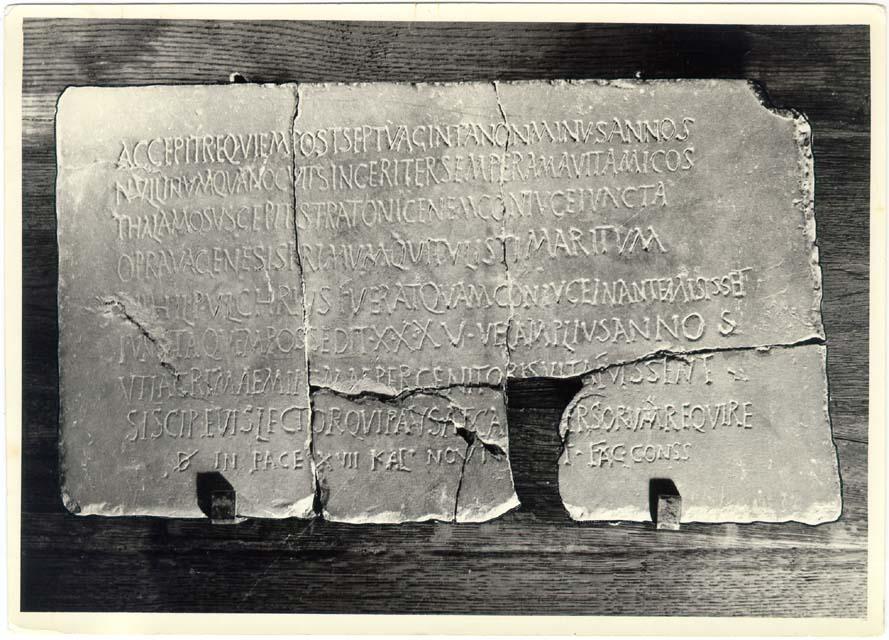 ACCEPIT REQVIEM POST SEPTVAGINTA NON MINVS ANNOS
NOCVIT SINCERITER SEMPER AMAVIT AMICOS
THALAMO SVSCEPIT STRATONICENEM CONIVGE IVNCTA
O PRAVA GENESIS PRIMVM QVI TVLISTI MARITVM
NIHIL PVLCHRIVS FVERAT QVAM CONIVGEIN ANTEMISISSET
IVNCTA QVEM POSSEDIT · XXXV · VEL AMPLIVS ANNOS
PER GENITORIS
SI SCIRE VIS LECTOR QVI PAVSA ERSORVM REQVIRE
IN PACE XVIII KAL NOV FAC CONSS